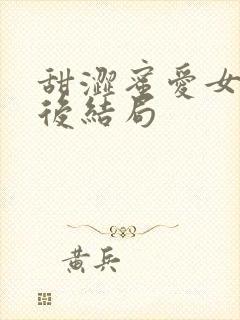 甜澀蜜愛女
後結局
黃兵